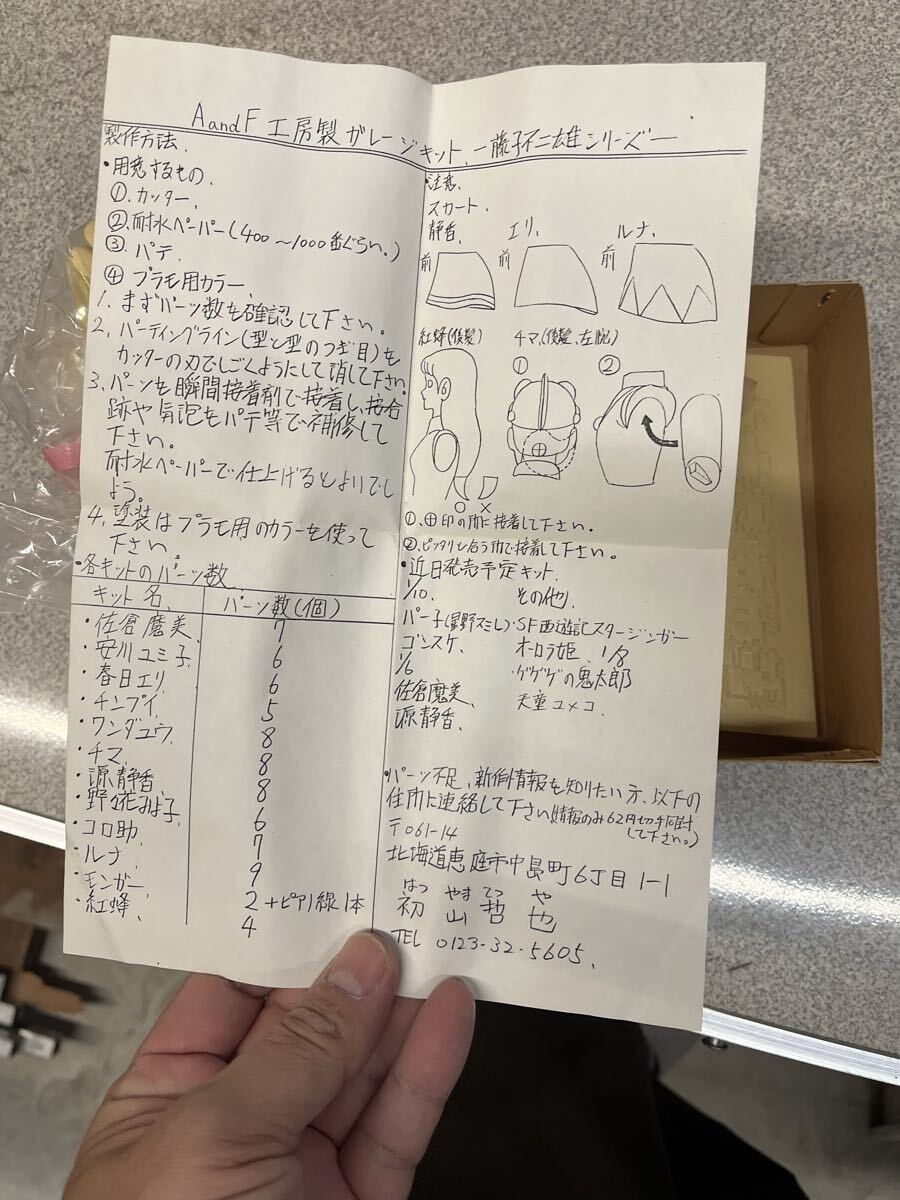 AandF 工房製 ガレージキット、―藤子不二雄シリーズ―
製作方法、
・用意するもの、
①、カッター、
②、耐水ペーパー(400〜1000番ぐらい。)
③、パテ、
④ プラモ用カラー、
1、まずパーツ数を確認して下さい。
2、パーティングライン(型と型のつぎ目)を
カッターの刃でしごくようにして消して下さい。
3、パーツを瞬間接着剤で接着し、接合
跡や気泡をパテ等で補修して
下さい。
耐水ペーパーで仕上げるとよいでし
ょう。
4、塗装はプラモ用のカラーを使って
下さい
・各キットのパーツ数
キット名、 パーツ数(個)
・佐倉魔美、 7
・安川ユミ子、 6
・春日エリ、 6
・チンプイ、 5
・ワンダユウ、 8
・チマ、 8
・源静香、 8
・野々花みよ子、 6
・コロ助、 7
・ルナ、 9
・モンガー、 2+ピアノ線1本
・紅蜂、 4
・注意、
スカート、
静香、 エリ、 ルナ、
前 前 前
紅蜂(後髪) チマ、(後髪、左腕)
① ②
○ ×
①、⊕印の所に接着して下さい。
②、ピッタリと合う所で接着して下さい。
・近日発売予定キット、
1/10、 その他、
パー子(星野スミレ)・SF西遊記スタージンガー
ゴンスケ、 オーロラ姫、1/8
1/6 ・ゲゲゲの鬼太郎
佐倉魔美、 天童ユメコ、
源静香、
・パーツ不足、新作情報を知りたい方、以下の
住所に連絡して下さい(情報のみ62円切手同封
して下さい。)
〒061-14
北海道恵庭市中島町6丁目1-1
はつ やま てつ や
初山哲也
TEL 0123-32-5605、